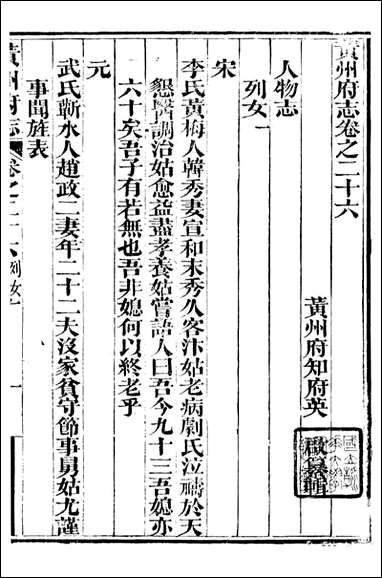 黃州府志卷之二十六
黃州府知府英啟纂輯
人物志
列女一
宋
李氏黃梅人韓秀妻宣和末秀久客汴姑老病劇氏泣禱於天
懇醫調治姑愈益盡孝養姑嘗語人曰吾今九十三吾媳亦
六十矣吾子有若無也吾非媳何以終老乎
元
武氏蘄水人趙政二妻年二十二夫沒家貧守節事舅姑尤謹
事聞旌表
黃州府志
卷之二十六列女一
一